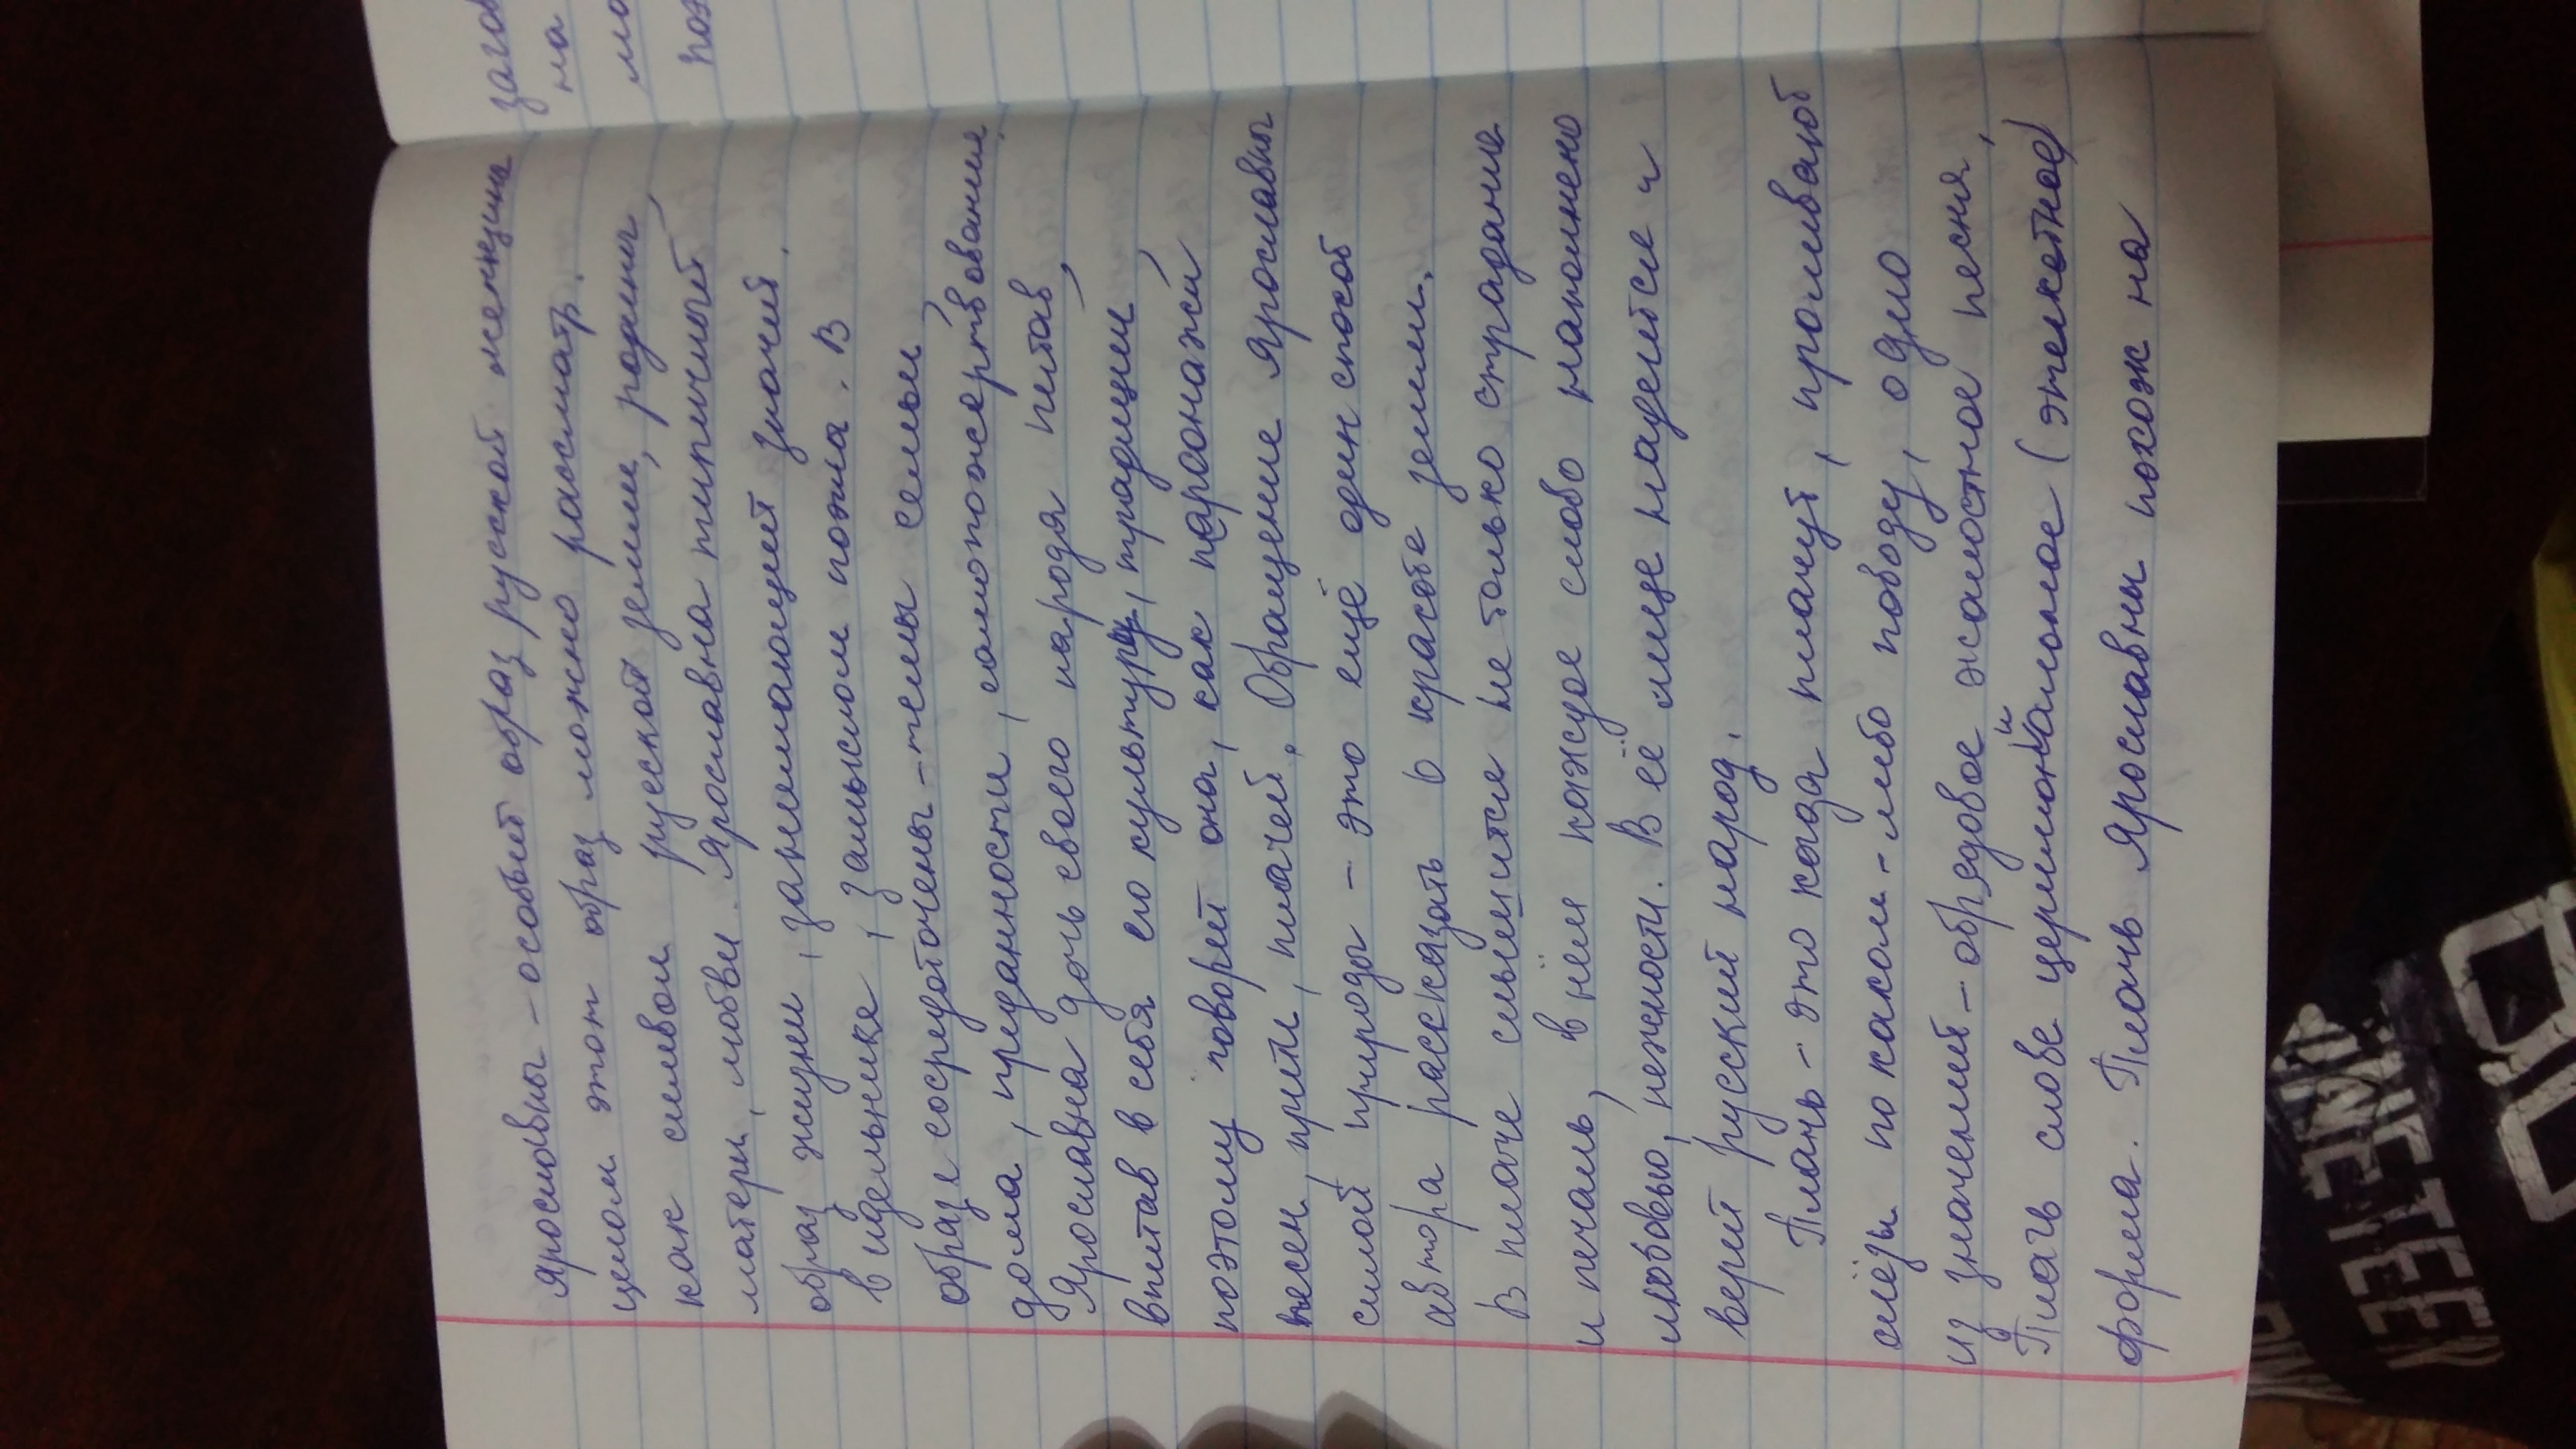 Ярославны - особый образ руской женщины
целом этот образ можно расматр.
как символ руской земли, родины,
матери, любви. Ярославна типичный
образ жизни, занимающей значит.
в идельнике, замыслом поэма. В
образе сосредоточены - темы семьи,
дома, преданности, самопожертвования.
Ярославна дочь своего народа питав,
впитав в себя его культуру, традиции,
поэтому говорит она, как парсонажи
песен, притч, плачей. Обращение Ярославны
силой природы - это ещё один способ
автора расказать о красоте земли.
В плаче слышится не только страдание
и печаль, в нём каждое слово наполнено
любовью, нежности. В её лице надеется и
верит руский народ.
Плачь - это когда плачут, проливают
слёзы по каком-либо поводу, одно
из значений - обрядовое жалостное песня,
Плачь слове церимониамое (этикетное)
форма. Плачь Ярославны похож на
загов
на
мо
поэ
PLANETEER